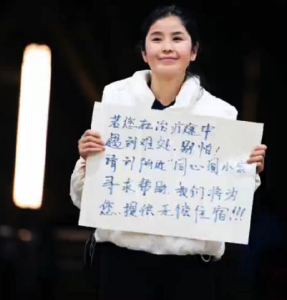 若您在治疗途中
遇到难处,别怕!
请到附近"同心圆小家
寻求帮助,我们将为
您提供无偿住宿!!!